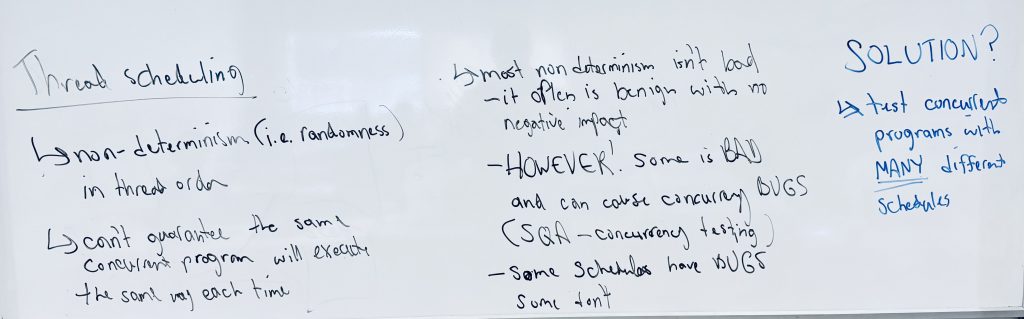 Thread scheduling
↳ non-determinism (i.e. randomness)
in thread order
↳ can't guarantee the same
concurrent program will execute
the same way each time
↳ most non determinism isn't bad
- it often is benign with no
negative impact
- HOWEVER! Some is BAD
and can cause concurrency BUGS
(SQA - concurrency testing)
- Some schedules have BUGS
Some don't
SOLUTION?
↳ test concurrent
programs with
MANY different
schedules